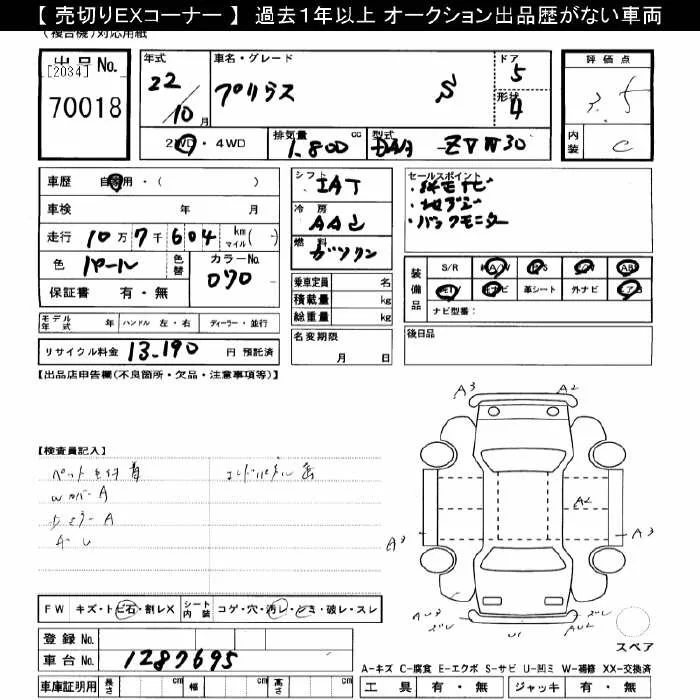 【 売切りEXコーナー 】 過去１年以上 オークション出品歴がない車両
(複合機)対応用紙
出品No.
[2034]
70018
年式
22
10月
車名・グレード
プリウス S
ドア
5
形状
4
2WD・4WD
排気量 cc
1.800
型式
DAA ZVW30
評価点
3.5
内装
C
車歴 自家用・( )
車検 年 月
走行 10万7千604 km マイル( )
色 パール 色替 カラーNo. 070
保証書 有・無
シフト IAT
冷房 AAC
燃料 ガソリン
乗車定員 名
積載量 kg
総重量 kg
セールスポイント
・純正ナビ
・地デジ
・バックモニター
装備品
S/R A/W P/S P/W AB
ETV 純ナビ 革シート 外ナビ エアB
ナビ型番:
モデル年式 年 ハンドル 左・右 ディーラー・並行
リサイクル料金 13.190 円 預託済
名変期限
月 日
後日品
【出品店申告欄(不良個所・欠品・注意事項等)】
【検査員記入】
A3 A2
A2
A3 A3
U1
FW キズ・トビ石・割レX シート内装 コゲ・穴・汚レ・シミ・破レ・スレ
登録No.
車台No. 1287695
スペア
A-キズ C-腐食 E-エクボ S-サビ U-凹ミ W-補修 XX-交換済
車庫証明用 長さ cm 幅 cm 高さ cm
工具 有・無 ジャッキ 有・無